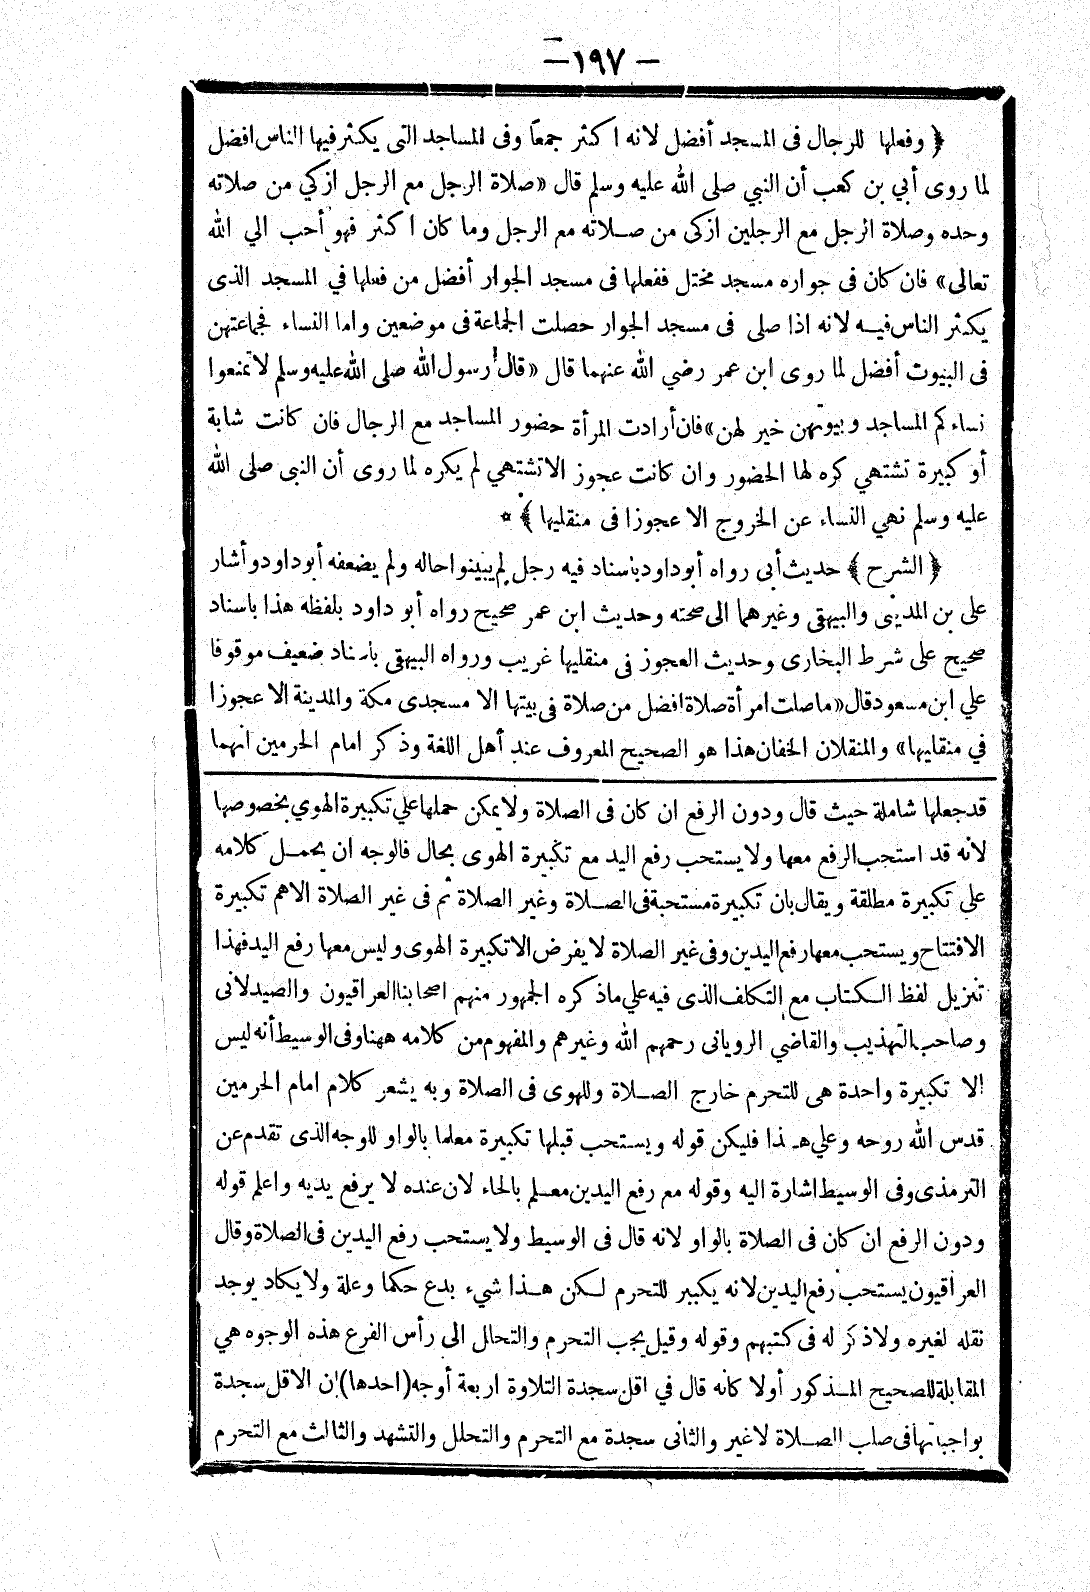 — ١٩٧ —
﴿ وفعلها للرجال فى المسجد أفضل لانه اكثر جمعاً وفى المساجد التى يكثر فيها الناس افضل
لما روى أبي بن كعب أن النبي صلى الله عليه وسلم قال «صلاة الرجل مع الرجل ازكي من صلاته
وحده وصلاة الرجل مع الرجلين ازكى من صلاته مع الرجل وما كان اكثر فهو أحب الي الله
تعالى» فان كان فى جواره مسجد مختل ففعلها فى مسجد الجوار أفضل من فعلها في المسجد الذى
يكثر الناس فيه لانه اذا صلى فى مسجد الجوار حصلت الجماعة فى موضعين واما النساء فجماعتهن
فى البيوت أفضل لما روى ابن عمر رضي الله عنهما قال «قال رسول الله صلى الله عليه وسلم لا تمنعوا
نساءكم المساجد وبيوتهن خير لهن» فان أرادت المرأة حضور المساجد مع الرجال فان كانت شابة
أو كبيرة تشتهي كره لها الحضور وان كانت عجوز الا تشتهي لم يكره لما روى أن النبى صلى الله
عليه وسلم نهي النساء عن الخروج الا عجوزا فى منقليها ﴾ *
﴿ الشرح ﴾ حديث أبى رواه أبو داود باسناد فيه رجل لم يبينوا حاله ولم يضعفه أبو داود وأشار
على بن المدينى والبيهقى وغيرهما الى صحته وحديث ابن عمر صحيح رواه أبو داود بلفظه هذا باسناد
صحيح على شرط البخارى وحديث العجوز فى منقليها غريب ورواه البيهقى باسناد ضعيف موقوفا
علي ابن مسعود قال «ما صلت امرأة صلاة افضل من صلاة فى بيتها الا مسجدى مكة والمدينة الا عجوزا
في منقليها» والمنقلان الخفان هذا هو الصحيح المعروف عند أهل اللغة وذكر امام الحرمين انهما
قد جعلها شاملة حيث قال ودون الرفع ان كان فى الصلاة ولا يمكن حملها علي تكبيرة الهوي بخصوصها
لانه قد استحب الرفع معها ولا يستحب رفع اليد مع تكبيرة الهوى بحال فالوجه ان يحمل كلامه
على تكبيرة مطلقة ويقال بان تكبيرة مستحبة فى الصلاة وغير الصلاة ثم فى غير الصلاة الاهم تكبيرة
الافتتاح ويستحب معها رفع اليدين وفى غير الصلاة لا يفرض الا تكبيرة الهوى وليس معها رفع اليد فهذا
تنزيل لفظ الكتاب مع التكلف الذى فيه علي ما ذكره الجمهور منهم اصحابنا العراقيون والصيدلانى
وصاحب التهذيب والقاضي الرويانى رحمهم الله وغيرهم والمفهوم من كلامه ههنا وفى الوسيط أنه ليس
الا تكبيرة واحدة هى للتحرم خارج الصلاة وللهوى فى الصلاة وبه يشعر كلام امام الحرمين
قدس الله روحه وعلي هذا فليكن قوله ويستحب قبلها تكبيرة معلما بالواو للوجه الذى تقدم عن
الترمذى وفى الوسيط اشارة اليه وقوله مع رفع اليدين معلم بالحاء لان عنده لا يرفع يديه واعلم قوله
ودون الرفع ان كان فى الصلاة بالواو لانه قال فى الوسيط ولا يستحب رفع اليدين فى الصلاة وقال
العراقيون يستحب رفع اليدين لانه يكبير للتحرم لكن هذا شيء بدع حكما وعلة ولا يكاد يوجد
نقله لغيره ولا ذكر له فى كتبهم وقوله وقيل يجب التحرم والتحلل الى رأس الفرع هذه الوجوه هي
المقابلة للصحيح المذكور أولا كانه قال في اقل سجدة التلاوة اربعة أوجه (احدها) إن الاقل سجدة
بواجباتها فى صلب الصلاة لا غير والثانى سجدة مع التحرم والتحلل والتشهد والثالث مع التحرم